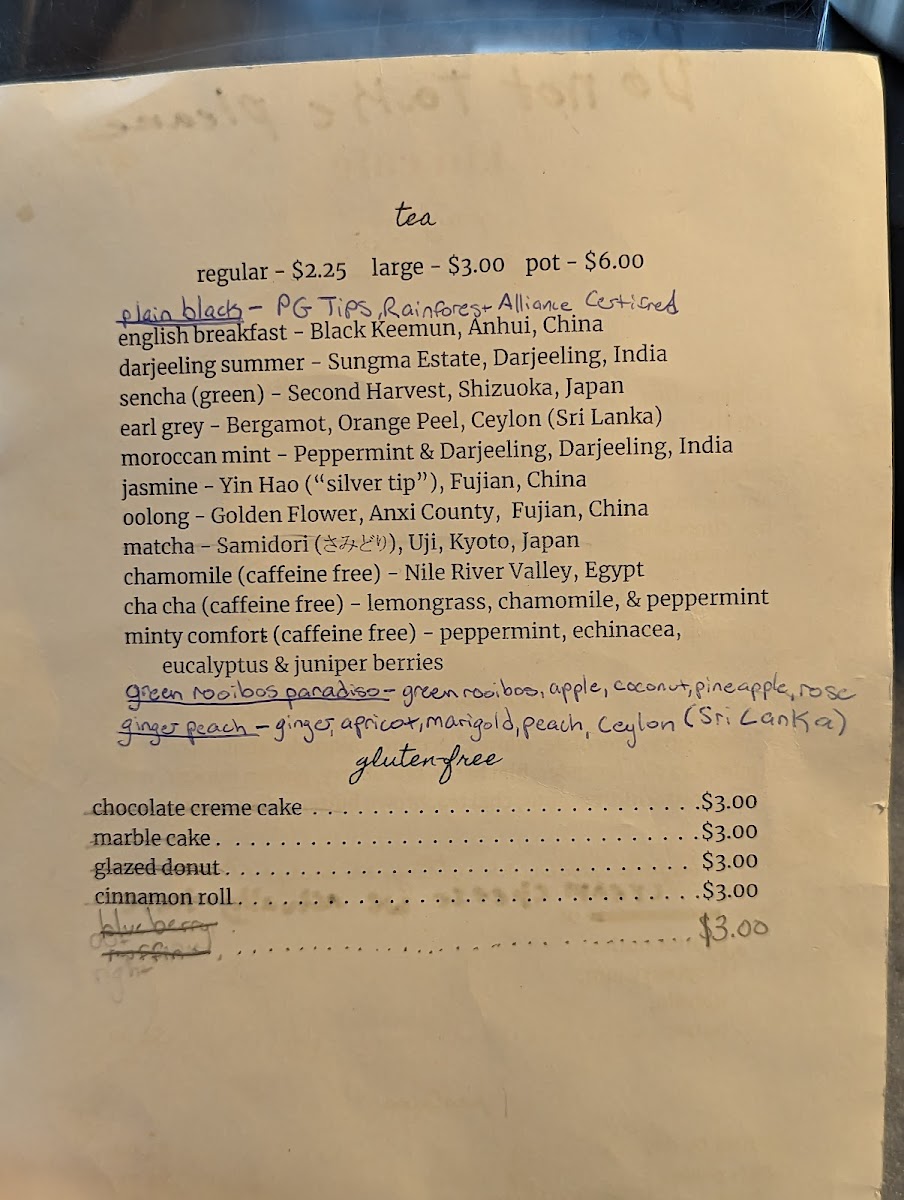 Do not Take please
tea
regular - $2.25 large - $3.00 pot - $6.00
plain black - PG Tips, Rainforest Alliance Certified
english breakfast - Black Keemun, Anhui, China
darjeeling summer - Sungma Estate, Darjeeling, India
sencha (green) - Second Harvest, Shizuoka, Japan
earl grey - Bergamot, Orange Peel, Ceylon (Sri Lanka)
moroccan mint - Peppermint & Darjeeling, Darjeeling, India
jasmine - Yin Hao (“silver tip”), Fujian, China
oolong - Golden Flower, Anxi County, Fujian, China
matcha - Samidori (さみどり), Uji, Kyoto, Japan
chamomile (caffeine free) - Nile River Valley, Egypt
cha cha (caffeine free) - lemongrass, chamomile, & peppermint
minty comfort (caffeine free) - peppermint, echinacea,
eucalyptus & juniper berries
green rooibos paradiso - green rooibos, apple, coconut, pineapple, rose
ginger peach - ginger, apricot, marigold, peach, Ceylon (Sri Lanka)
gluten-free
chocolate creme cake . . . . . . . . . . . . . . . . . . . . . . . . . . .$3.00
marble cake . . . . . . . . . . . . . . . . . . . . . . . . . . . . . . . . . .$3.00
glazed donut . . . . . . . . . . . . . . . . . . . . . . . . . . . . . . . . . $3.00
cinnamon roll . . . . . . . . . . . . . . . . . . . . . . . . . . . . . . . . .$3.00
blueberry
muffin . . . . . . . . . . . . . . . . . . . . . . . . . . . . . . $3.00